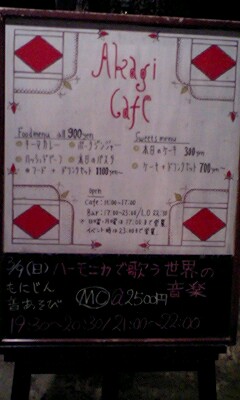 Akagi
Cafe
Foodmenu all 900yen
・キーマカレー
・ポークジンジャー
・ハッシュドビーフ
・本日のパスタ
※フード+ドリンクセット 1100yen〜
Sweets menu
・本日のケーキ 300yen
・ケーキ+ドリンクセット 700yen〜
open
Cafe : 11:00-17:00
Bar : 17:00-23:00/L.O 22:30
(日)ハーモニカで歌う世界の
音楽
もにじん
音あそび
MC 2500円
19:30〜20:30/21:00〜22:00